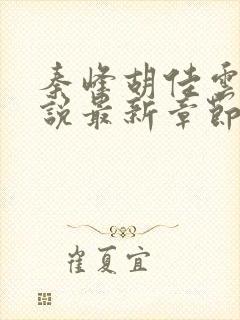 秦峰胡佳雲
說最新章節
崔夏宜